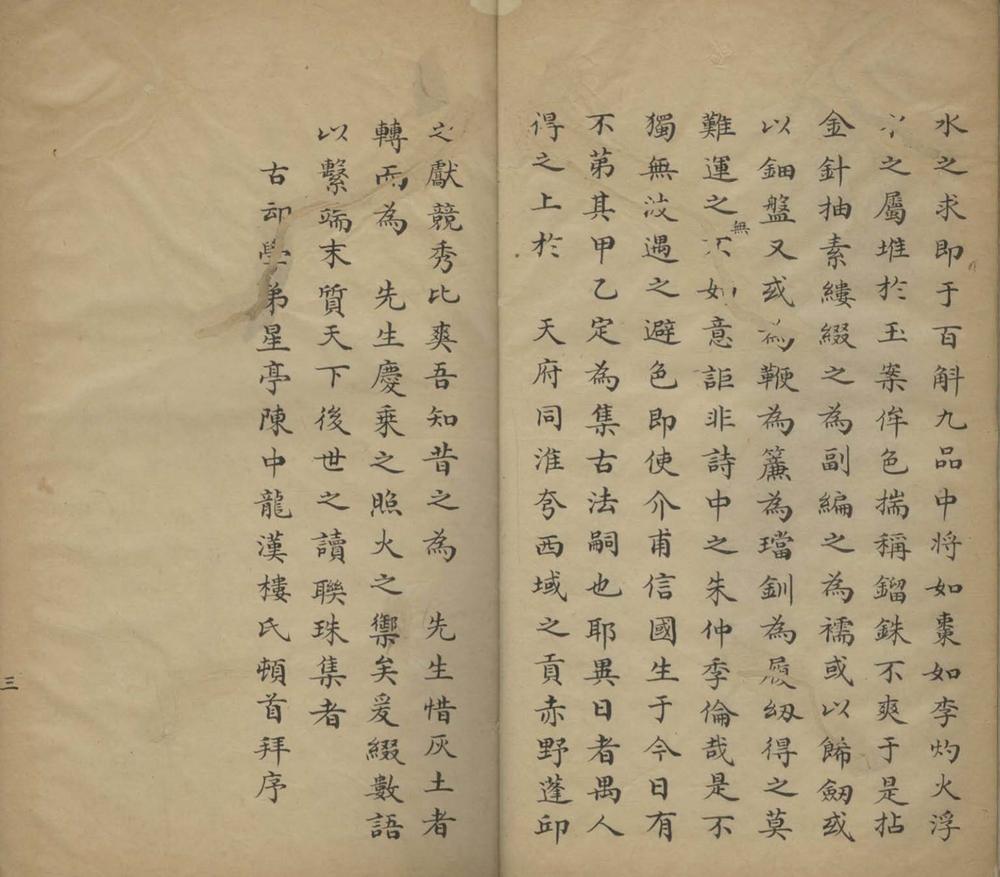 水之求即于百斛九品中将如棗如李灼火浮
水之屬堆於玉案侔色揣稱鎦銖不爽于是拈
金針抽素縷綴之為副編之為襦或以餙劔或
以鈿盤又或為鞭為簾為璫釧為履紉得之莫
難運之無不如意詎非詩中之朱仲季倫哉是不
獨無波遇之避色即使介甫信國生于今日有
不苐其甲乙定為集古法嗣也耶異日者禺人
得之上於　天府同淮夸西域之貢赤野蓬邱
之獻競秀比爽吾知昔之為　先生惜灰土者
轉而為　先生慶乗之照火之禦矣爰綴數語
以繫端末質天下後世之讀聮珠集者
古卭學弟星亭陳中龍漢樓氏頓首拜序
三